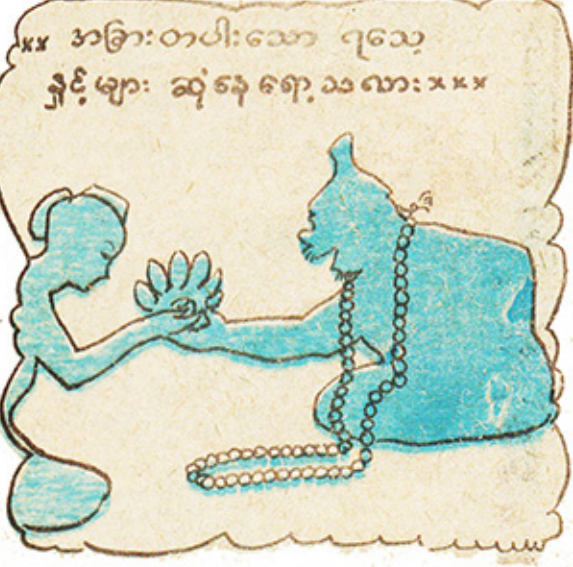 ×× အခြားတပါးသော ရသေ့
နှင့်များ ဆုံနေရော့သလား×××